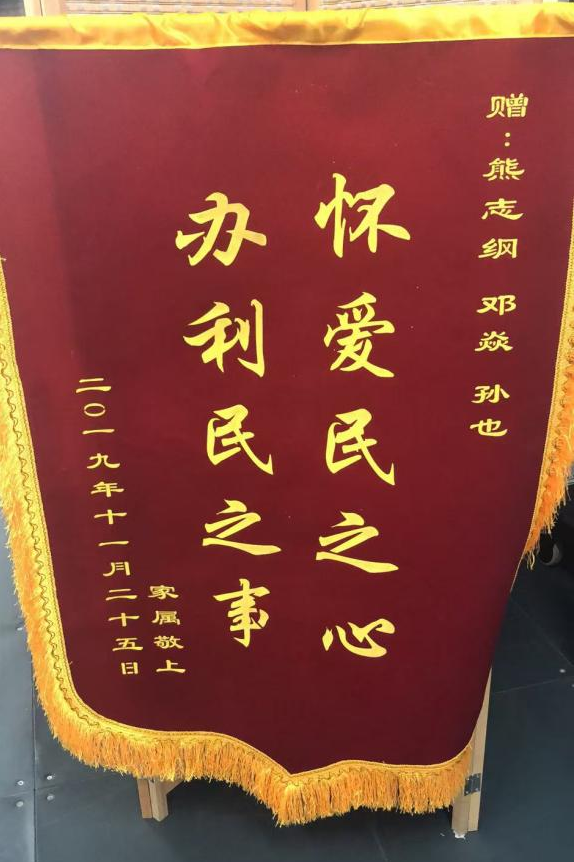 赠：熊志纲 邓焱 孙也
怀爱民之心
办利民之事
家属敬上
二〇一九年十一月二十五日